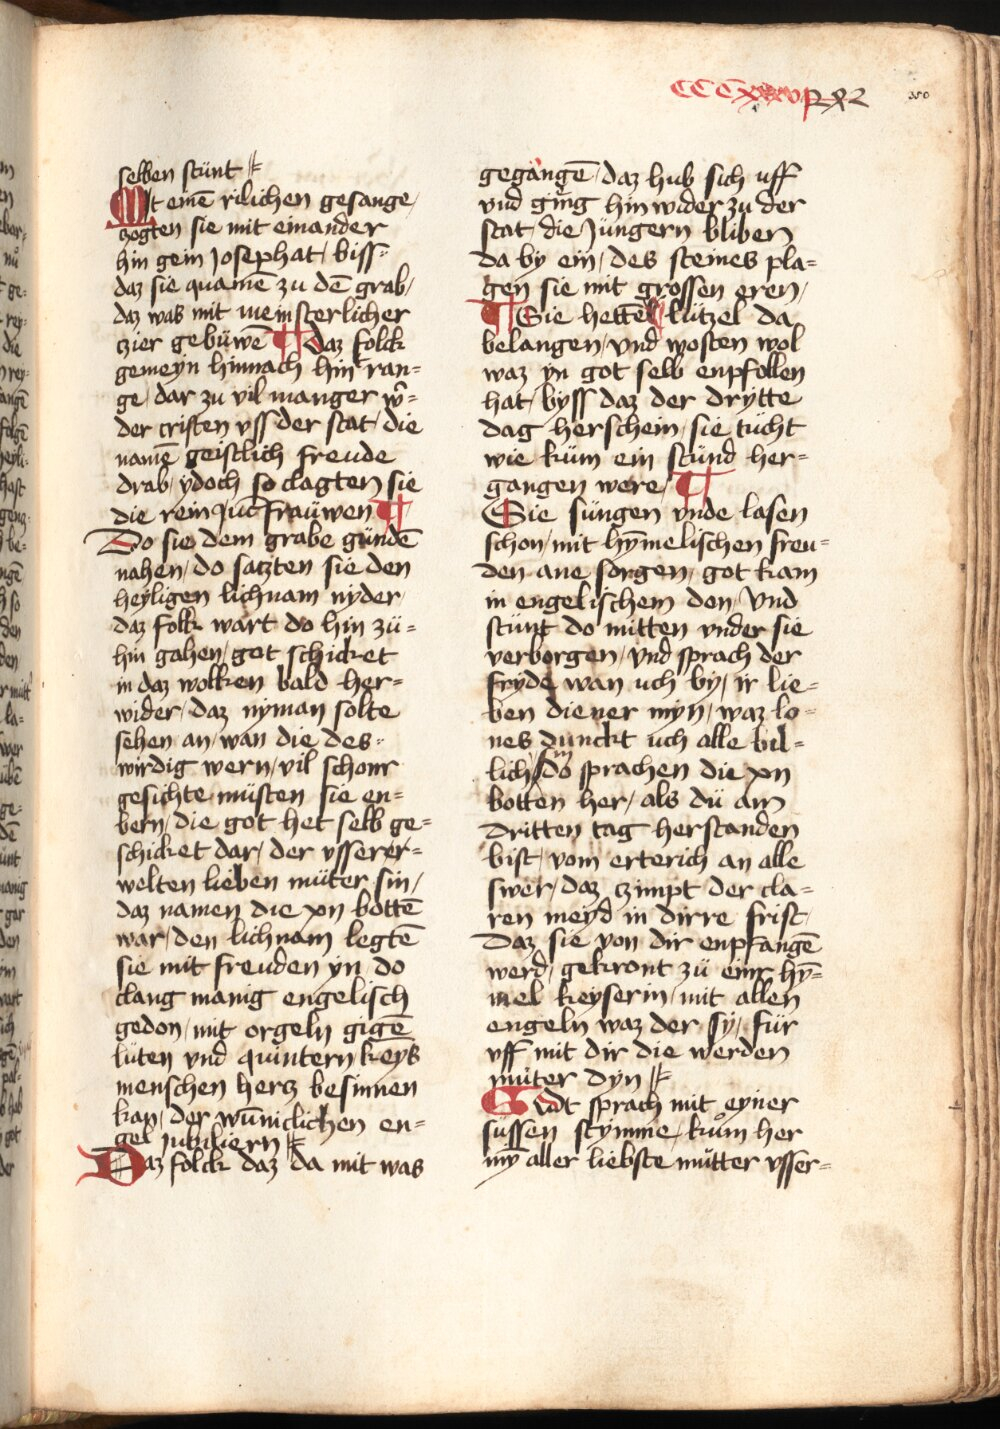 350
selben stünt
Mit einē rilichen gesange /
zogten sie mit einander
hin gein Josephat / biss=
daz sie quamē zu dē grab /
daz was mit meinsterlicher
czier gebüwē ¶ daz folck
gemeyn hinnach hin ran=
ge / dar zu vil manger
der cristen vss der stat / die
namē geistlich freude
drab / ydoch so clagten sie
die rein Juncfraüwen ¶
Do sie dem grabe gündē
nahen / do saczten sie den
heyligen lichnam nyder /
daz folk wart do hin zü=
hin gahen / got schicket
in daz wolken bald her=
wider / daz nyman solte
sehen an / wan die des=
wirdig wern / vil schonr
gesichte müsten sie en=
bern / die got het selb ge=
schicket dar / der vsserer=
welten lieben müter sin /
daz namen die xpn bottē
war / den lichnam legtē
sie mit freuden yn do
clang manig engelisch
gedon / mit orgeln gigē
lüten vnd quintern keyß
menschen hercz besinnen
kan / der wūniclichen en=
gel Jubiliern
Daz folck daz da mit was
gegangē / daz hub sich uff
vnd ging hin wider zu der
stat / die Jüngern bliben
da by ein / des steines pla=
gen sie mit grossen eren /
¶ Sie hettē lützel da
belangen / vnd wosten wol
waz yn got selb enpfollen
hat / byss daz der drytte
dag herschein / sie tücht
wie küm ein stünd her=
gangen were / ¶
Sie süngen vnde lasen
schon / mit hȳmelischen freu=
den ane sorgen / got kam
in engelischem don / Vnd
stünt do mitten vnder sie
verborgen / vnd sprach der
fryde wan uch by / ir lie=
ben diener myn / waz lo=
nes dunckt uch alle bil=
lich sin / do sprachen die xpn
botten her / als dü am
dritten tag herstanden
bist / vom erterich an alle
swer / daz czimpt der cla=
ren meyd in dirre frist /
Daz sie von dir enpfangē
werd / gekront zü einr hȳ=
mel keyserin / mit allen
engeln waz der sy / für
vff mit dir die werden
muter dyn
Godt sprach mit eyner
süssen stymme / kům her
mȳ aller liebste mütter vsser=